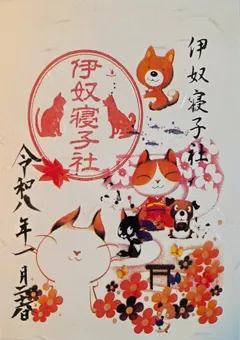 伊奴寝子社
伊奴寝子社
令和八年一月二春